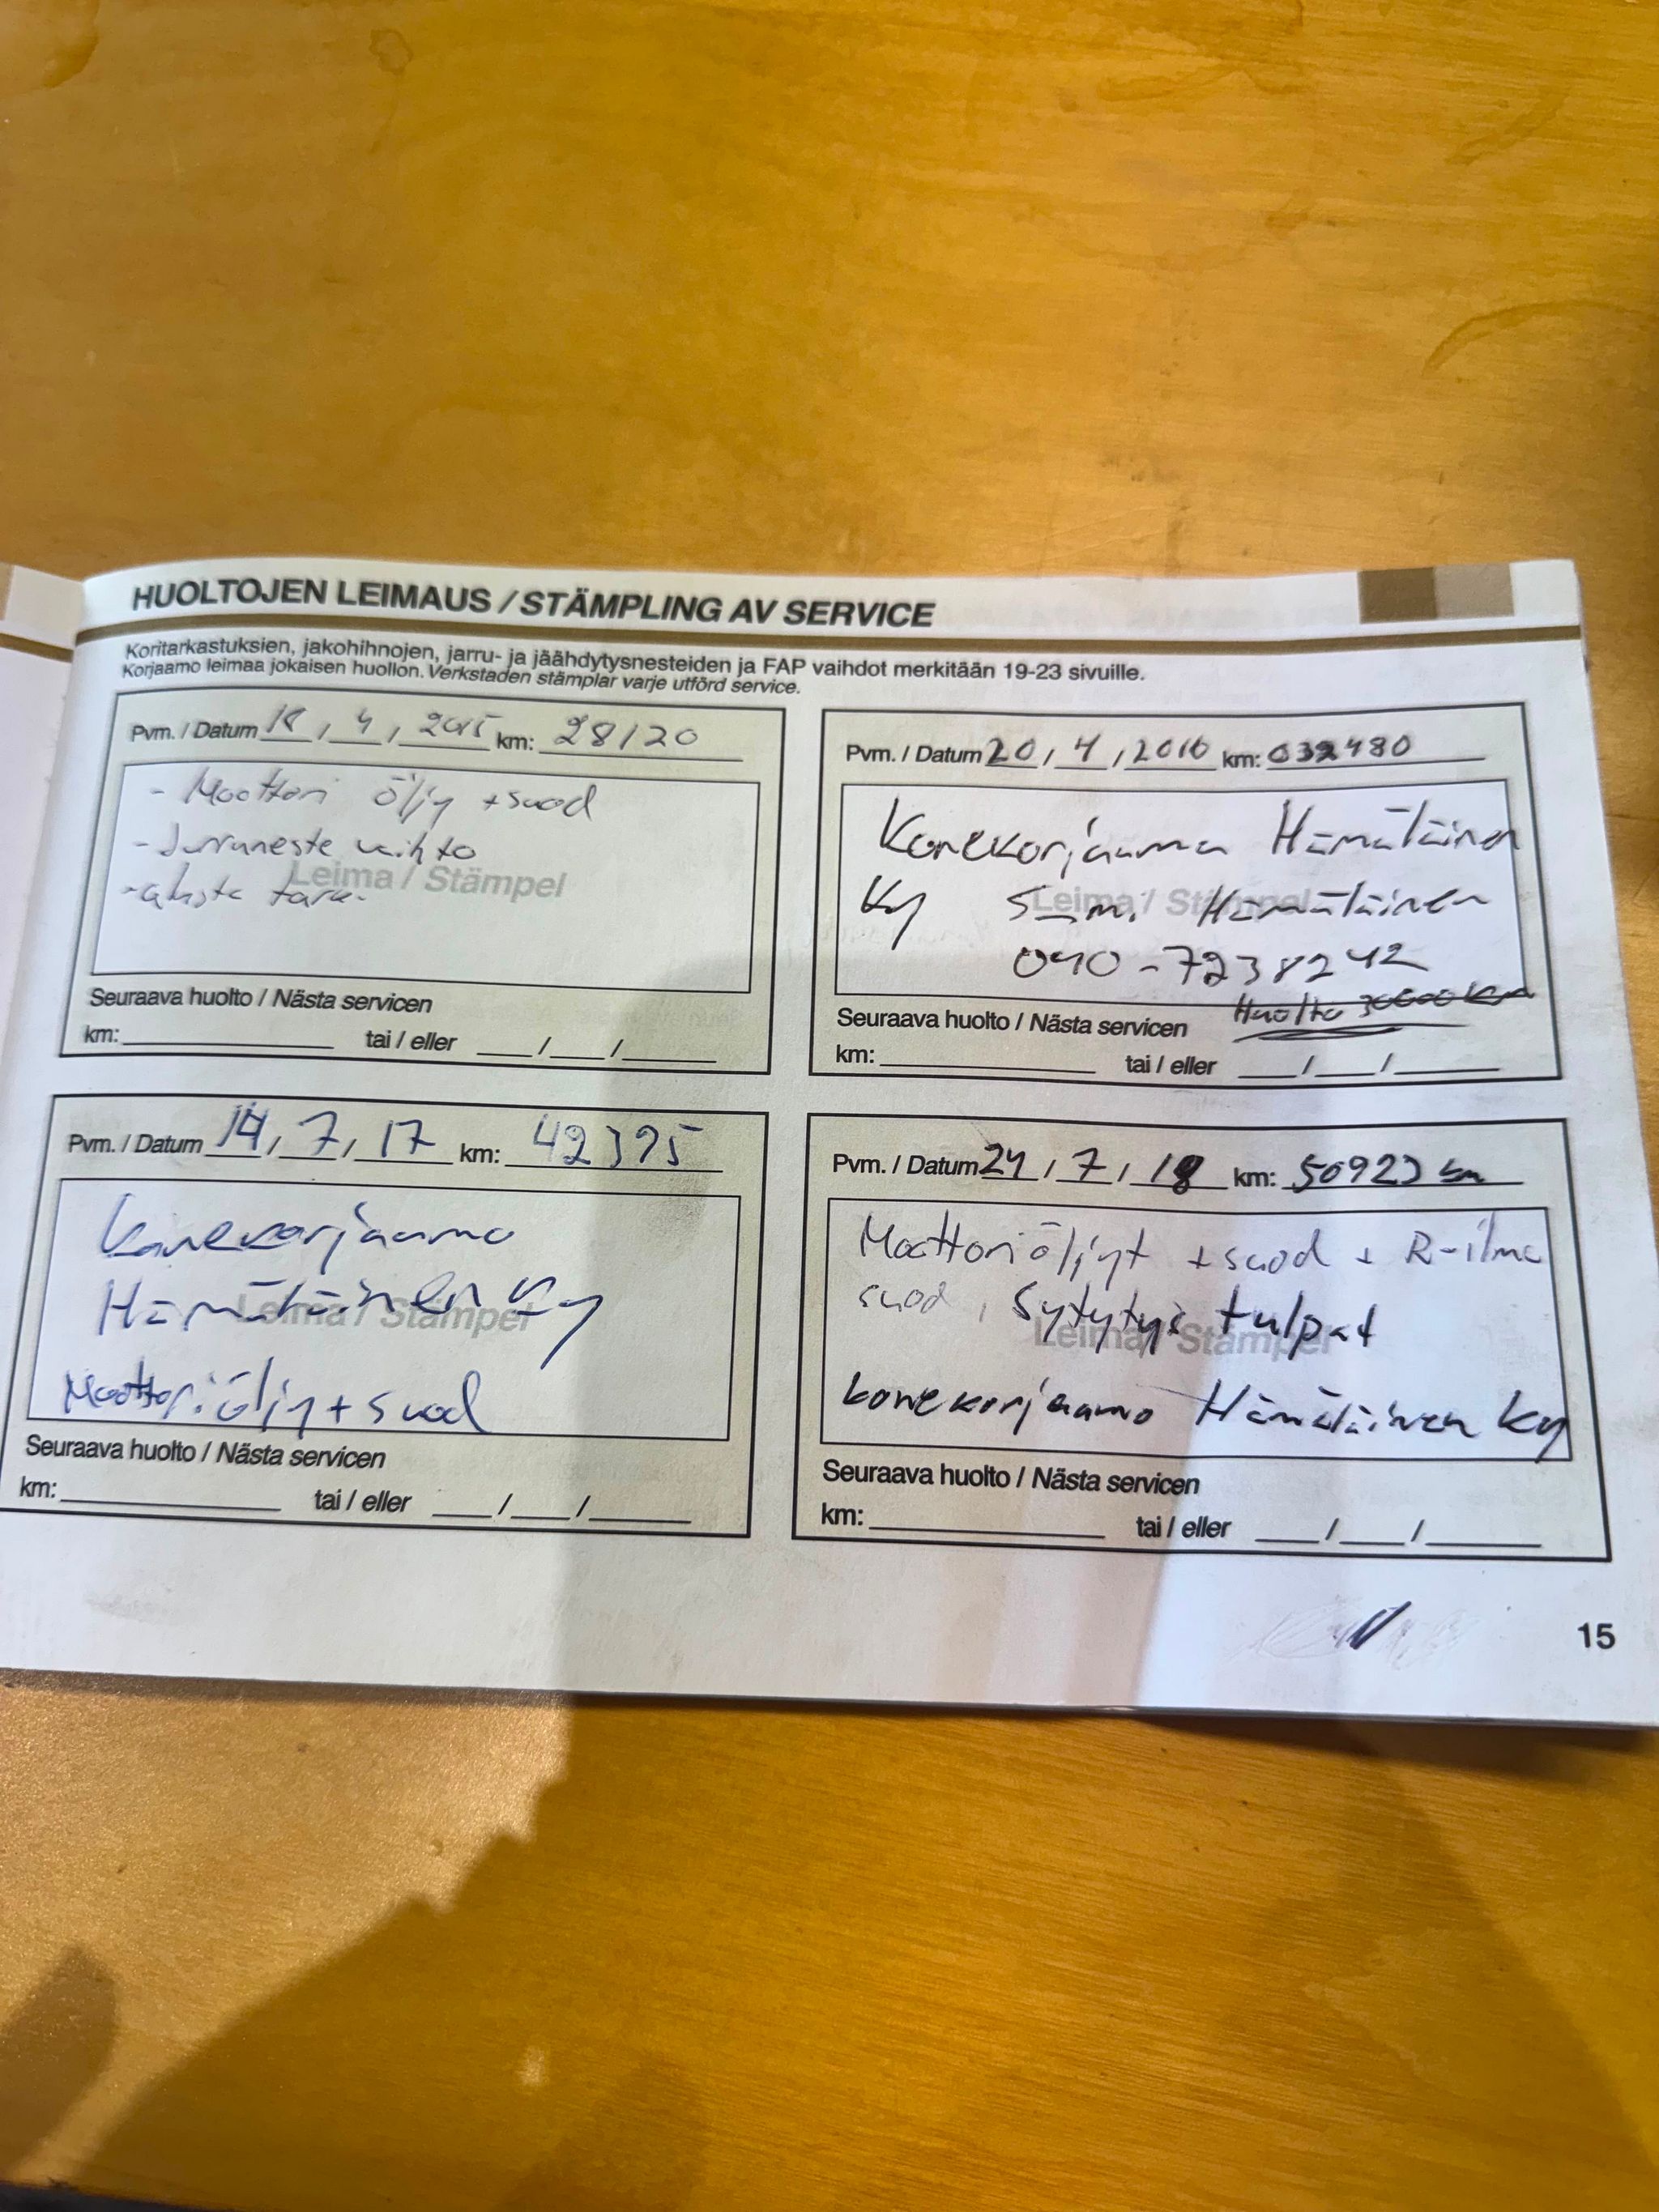 HUOLTOJEN LEIMAUS / STÄMPLING AV SERVICE
Koritarkastuksien, jakohihnojen, jarru- ja jäähdytysnesteiden ja FAP vaihdot merkitään 19-23 sivuille.
Korjaamo leimaa jokaisen huollon. Verkstaden stämplar varje utförd service.
Pvm. / Datum / 4 / 2015 km: 28120
- Moottori öljy + suod
- Jarruneste vaihto
- alusta tark.
Leima / Stämpel
Seuraava huolto / Nästa servicen
km: tai / eller / /
Pvm. / Datum 20 / 4 / 2016 km: 032480
Konekorjaamo Hämäläinen
Ky Hämäläinen
Leima / Stämpel
040-7238242
Huolto 30000 km
Seuraava huolto / Nästa servicen
km: tai / eller / /
Pvm. / Datum 14 / 7 / 17 km: 42395
Konekorjaamo
Hämäläinen Ky
Leima / Stämpel
Moottoriöljy + suod
Seuraava huolto / Nästa servicen
km: tai / eller / /
Pvm. / Datum 24 / 7 / 18 km: 50923 km
Moottoriöljyt + suod + R-ilma
suod, Sytytys tulpat
Leima / Stämpel
konekorjaamo Hämäläinen Ky
Seuraava huolto / Nästa servicen
km: tai / eller / /
15